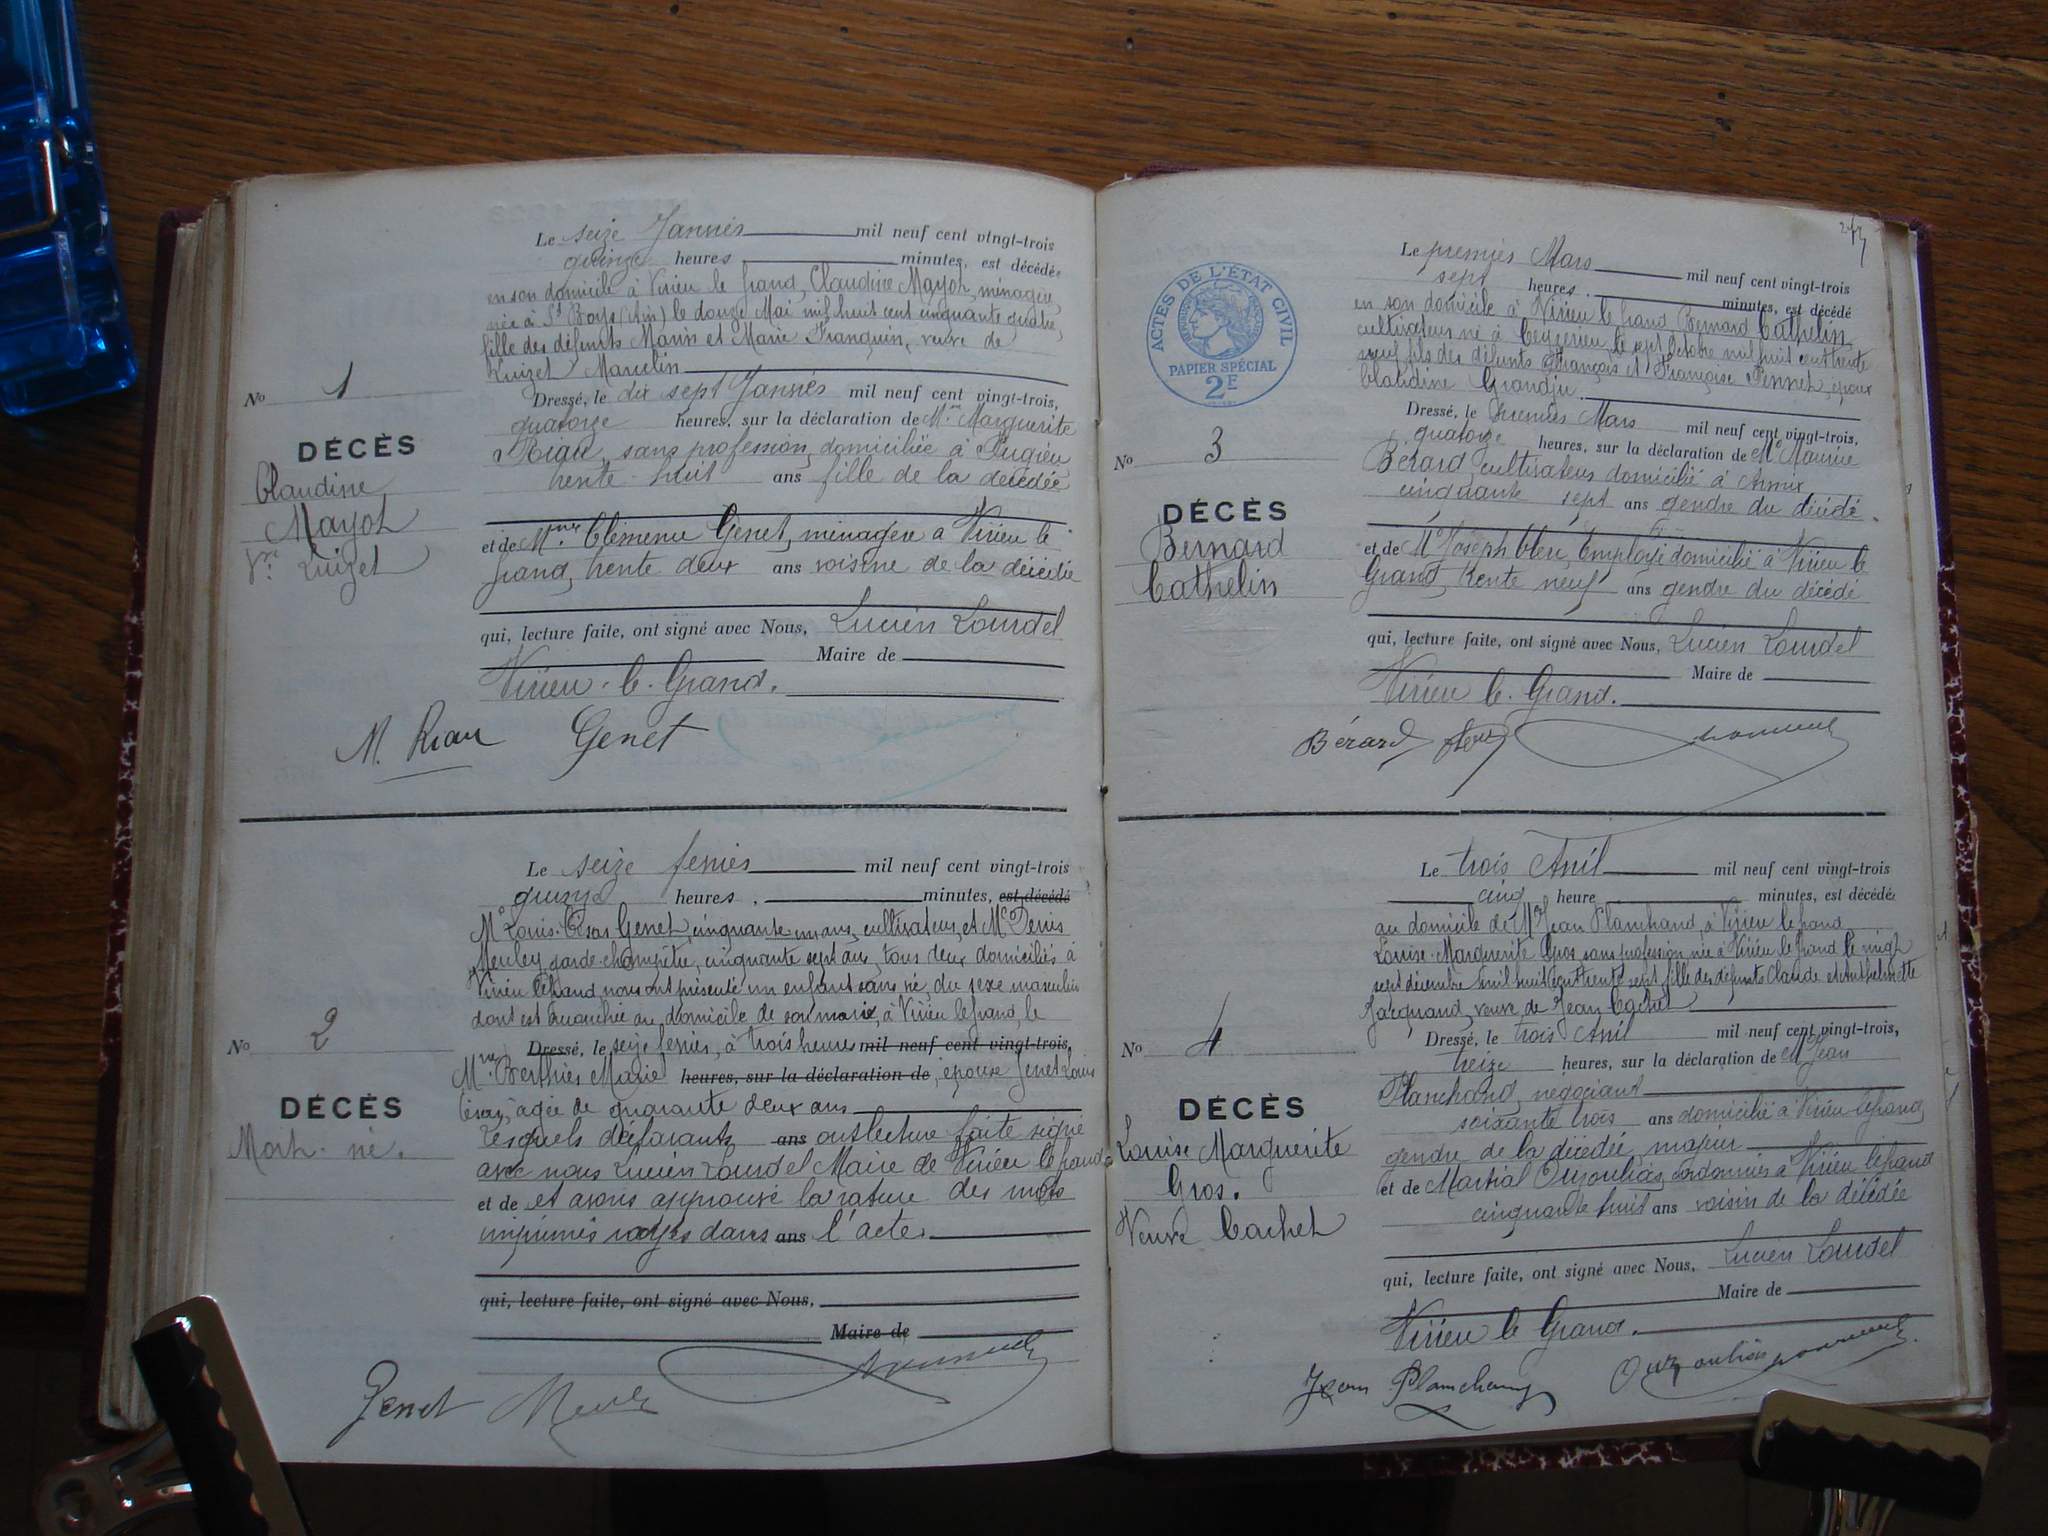 Le seize Janvier mil neuf cent vingt-trois
quinze heures minutes, est décédée
en son domicile à Virieu le Grand, Claudine Mayot, ménagère,
née à St Boys (Ain) le douze Mai mil huit cent cinquante quatre,
fille des défunts Marin et Marie Franquin, veuve de
Luizet Marcelin
No 1
DÉCÈS
Claudine
Mayot
Vve Luizet
Dressé, le dix sept Janvier mil neuf cent vingt-trois,
quatorze heures, sur la déclaration de Mme Marguerite
Riau, sans profession, domiciliée à Pugieu
trente-huit ans fille de la décédée
et de Mme Clémence Genet, ménagère à Virieu le
Grand, trente deux ans voisine de la décédée
qui, lecture faite, ont signé avec Nous, Lucien Lourdel
Maire de
Virieu-le-Grand.
M. Riau Genet
Le seize février mil neuf cent vingt-trois
quinze heures, minutes, est décédé
Mr Louis-César Genet, cinquante un ans, cultivateur, et Mr Denis
Meuley, garde-champêtre, cinquante sept ans, tous deux domiciliés à
Virieu le Grand, nous ont présenté un enfant sans vie, du sexe masculin
dont est accouchée au domicile de son mari, à Virieu le Grand, le
No 2
DÉCÈS
Mort-né.
Dressé, le seize février, à trois heures mil neuf cent vingt-trois,
Mme Berthier Marie heures, sur la déclaration de, épouse Genet Louis
César, agée de quarante deux ans
Lesquels déclarants ans ont lecture faite signé
avec nous Lucien Lourdel Maire de Virieu le Grand
et de et avons approuvé la rature des mots
imprimés rayés dans ans l'acte.
qui, lecture faite, ont signé avec Nous,
Maire de
Genet
ACTES DE L'ÉTAT CIVIL
PAPIER SPÉCIAL
2F
Le premier Mars mil neuf cent vingt-trois
sept heures, minutes, est décédé
en son domicile à Virieu le Grand, Bernard Cathelin
cultivateur né à Ceyzérieu, le sept Octobre mil huit cent trente
neuf fils des défunts François et Françoise Pennet, époux
Claudine Grandju.
No 3
DÉCÈS
Bernard
Cathelin
Dressé, le premier Mars mil neuf cent vingt-trois,
quatorze heures, sur la déclaration de Mr Maurice
Bérard, cultivateur domicilié à
cinquante sept ans gendre du décédé.
et de Mr Joseph, Employé domicilié à Virieu le
Grand, trente neuf ans gendre du décédé
qui, lecture faite, ont signé avec Nous, Lucien Lourdel
Maire de
Virieu le-Grand.
Bérard
Le trois Avril mil neuf cent vingt-trois
cinq heure minutes, est décédée
au domicile de Mr Jean Planchand, à Virieu le grand
Louise-Marguerite Gros, sans profession, née à Virieu le Grand le vingt
sept décembre mil huit cent trente sept, fille des défunts Claude et Anthelmette
Jacquand, veuve de Jean Cachet
No 4
DÉCÈS
Louise Marguerite
Gros.
Veuve Cachet
Dressé, le trois Avril mil neuf cent vingt-trois,
treize heures, sur la déclaration de Mr Jean
Planchand, négociant
soixante trois ans domicilié à Virieu le Grand
gendre de la décédée, majeur
et de Martial Ouzoulias, cordonnier à Virieu le Grand
cinquante huit ans voisin de la décédée
qui, lecture faite, ont signé avec Nous, Lucien Lourdel
Maire de
Virieu le Grand.
Jean Planchand Ouzoulias